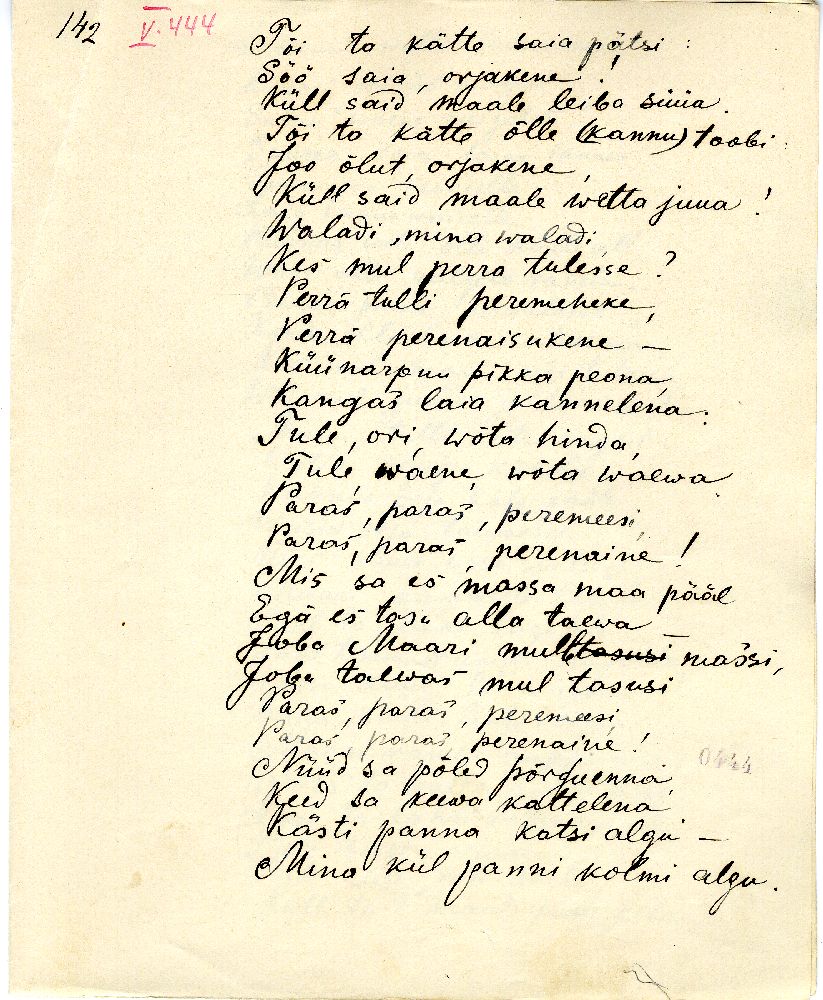 142 V. 444
Tõi ta kätte saia pätsi :
Söö saia, orjakene !
Küll said maale leiba süüa.
Tõi ta kätte õlle (kannu) toobi :
Joo õlut, orjakene,
Küll said maale wetta juua !
Waladi, mina waladi,
Kes mul perra tulesse ?
Perrä tulli peremeheke,
Perrä perenaisukene —
Küünarpuu pikka peona,
Kangas laia kannelena.
Tule, ori, wõta hinda,
Tule, waene, wõta waewa
Paras, paras, peremeesi,
Paras, paras, perenaine !
Mis sa es massa maa pääl
Ega es tasu alla taewa
Joba Maari mull tasusi massi,
Joba taewas mul tasusi
Paras, paras, peremeesi,
Paras, paras, perenaine !
0444
Nüüd sa põled põrguenna,
Keed sa keewa kattelena
Kästi panna katsi algu —
Mina kül panni kolmi algu.